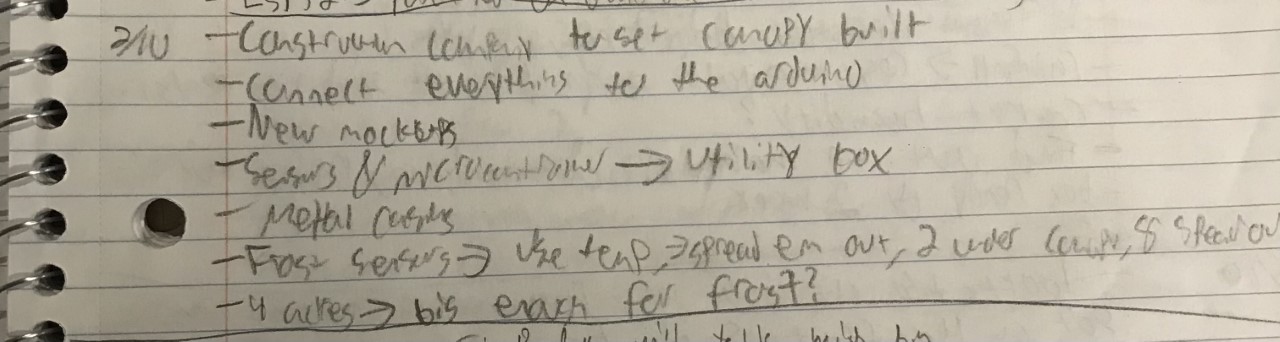 2/10 - Construction company to get canopy built
- Connect everything to the arduino
- New mockups
- Sensors & microcontroller → utility box
- Metal casing
- Frost sensors → Use temp, → spread em out, 2 under canopy, 8 spread out
- 4 acres → big enough for frost?
will talk with